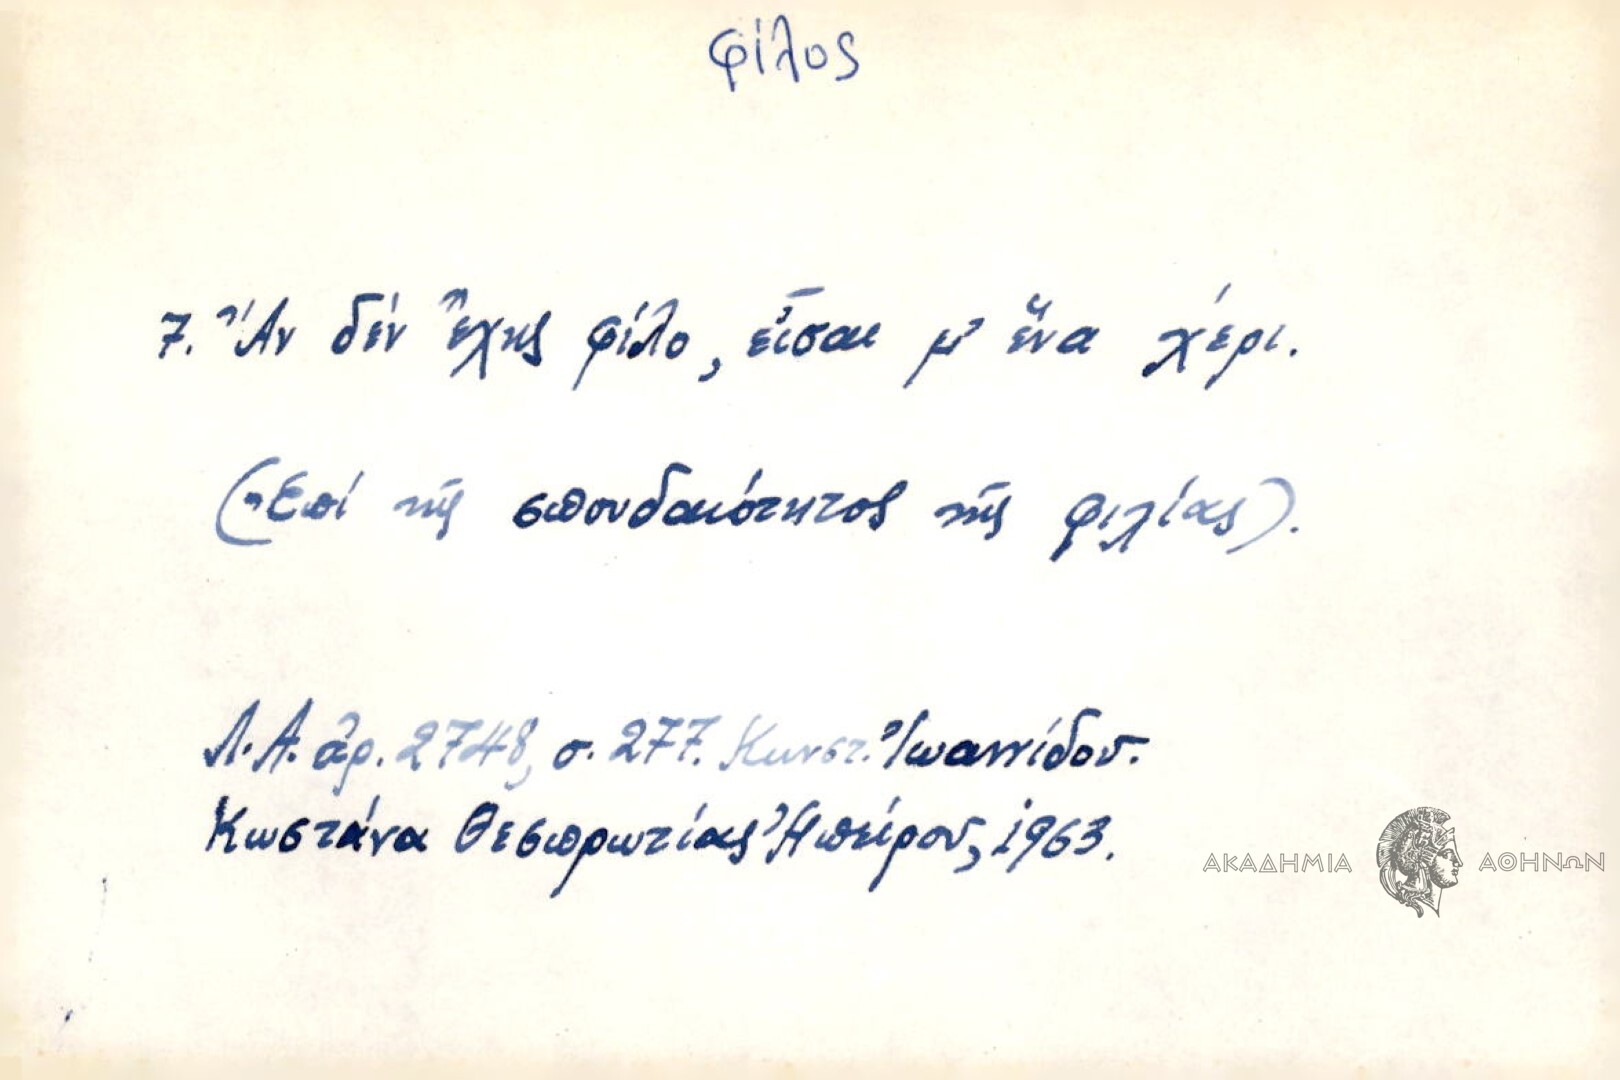 φίλος
7. Ἂν δέν ἔχῃς φίλο, εἶσαι μ' ἕνα χέρι.
(Ἐπί τῆς σπουδαιότητος τῆς φιλίας).
Λ.Α. ἀρ. 2748, σ. 277. Κωνστ. Ἰωαννίδου.
Κωστάνα Θεσπρωτίας Ἠπείρου, 1963.
ΑΚΑΔΗΜΙΑ ΑΘΗΝΩΝ